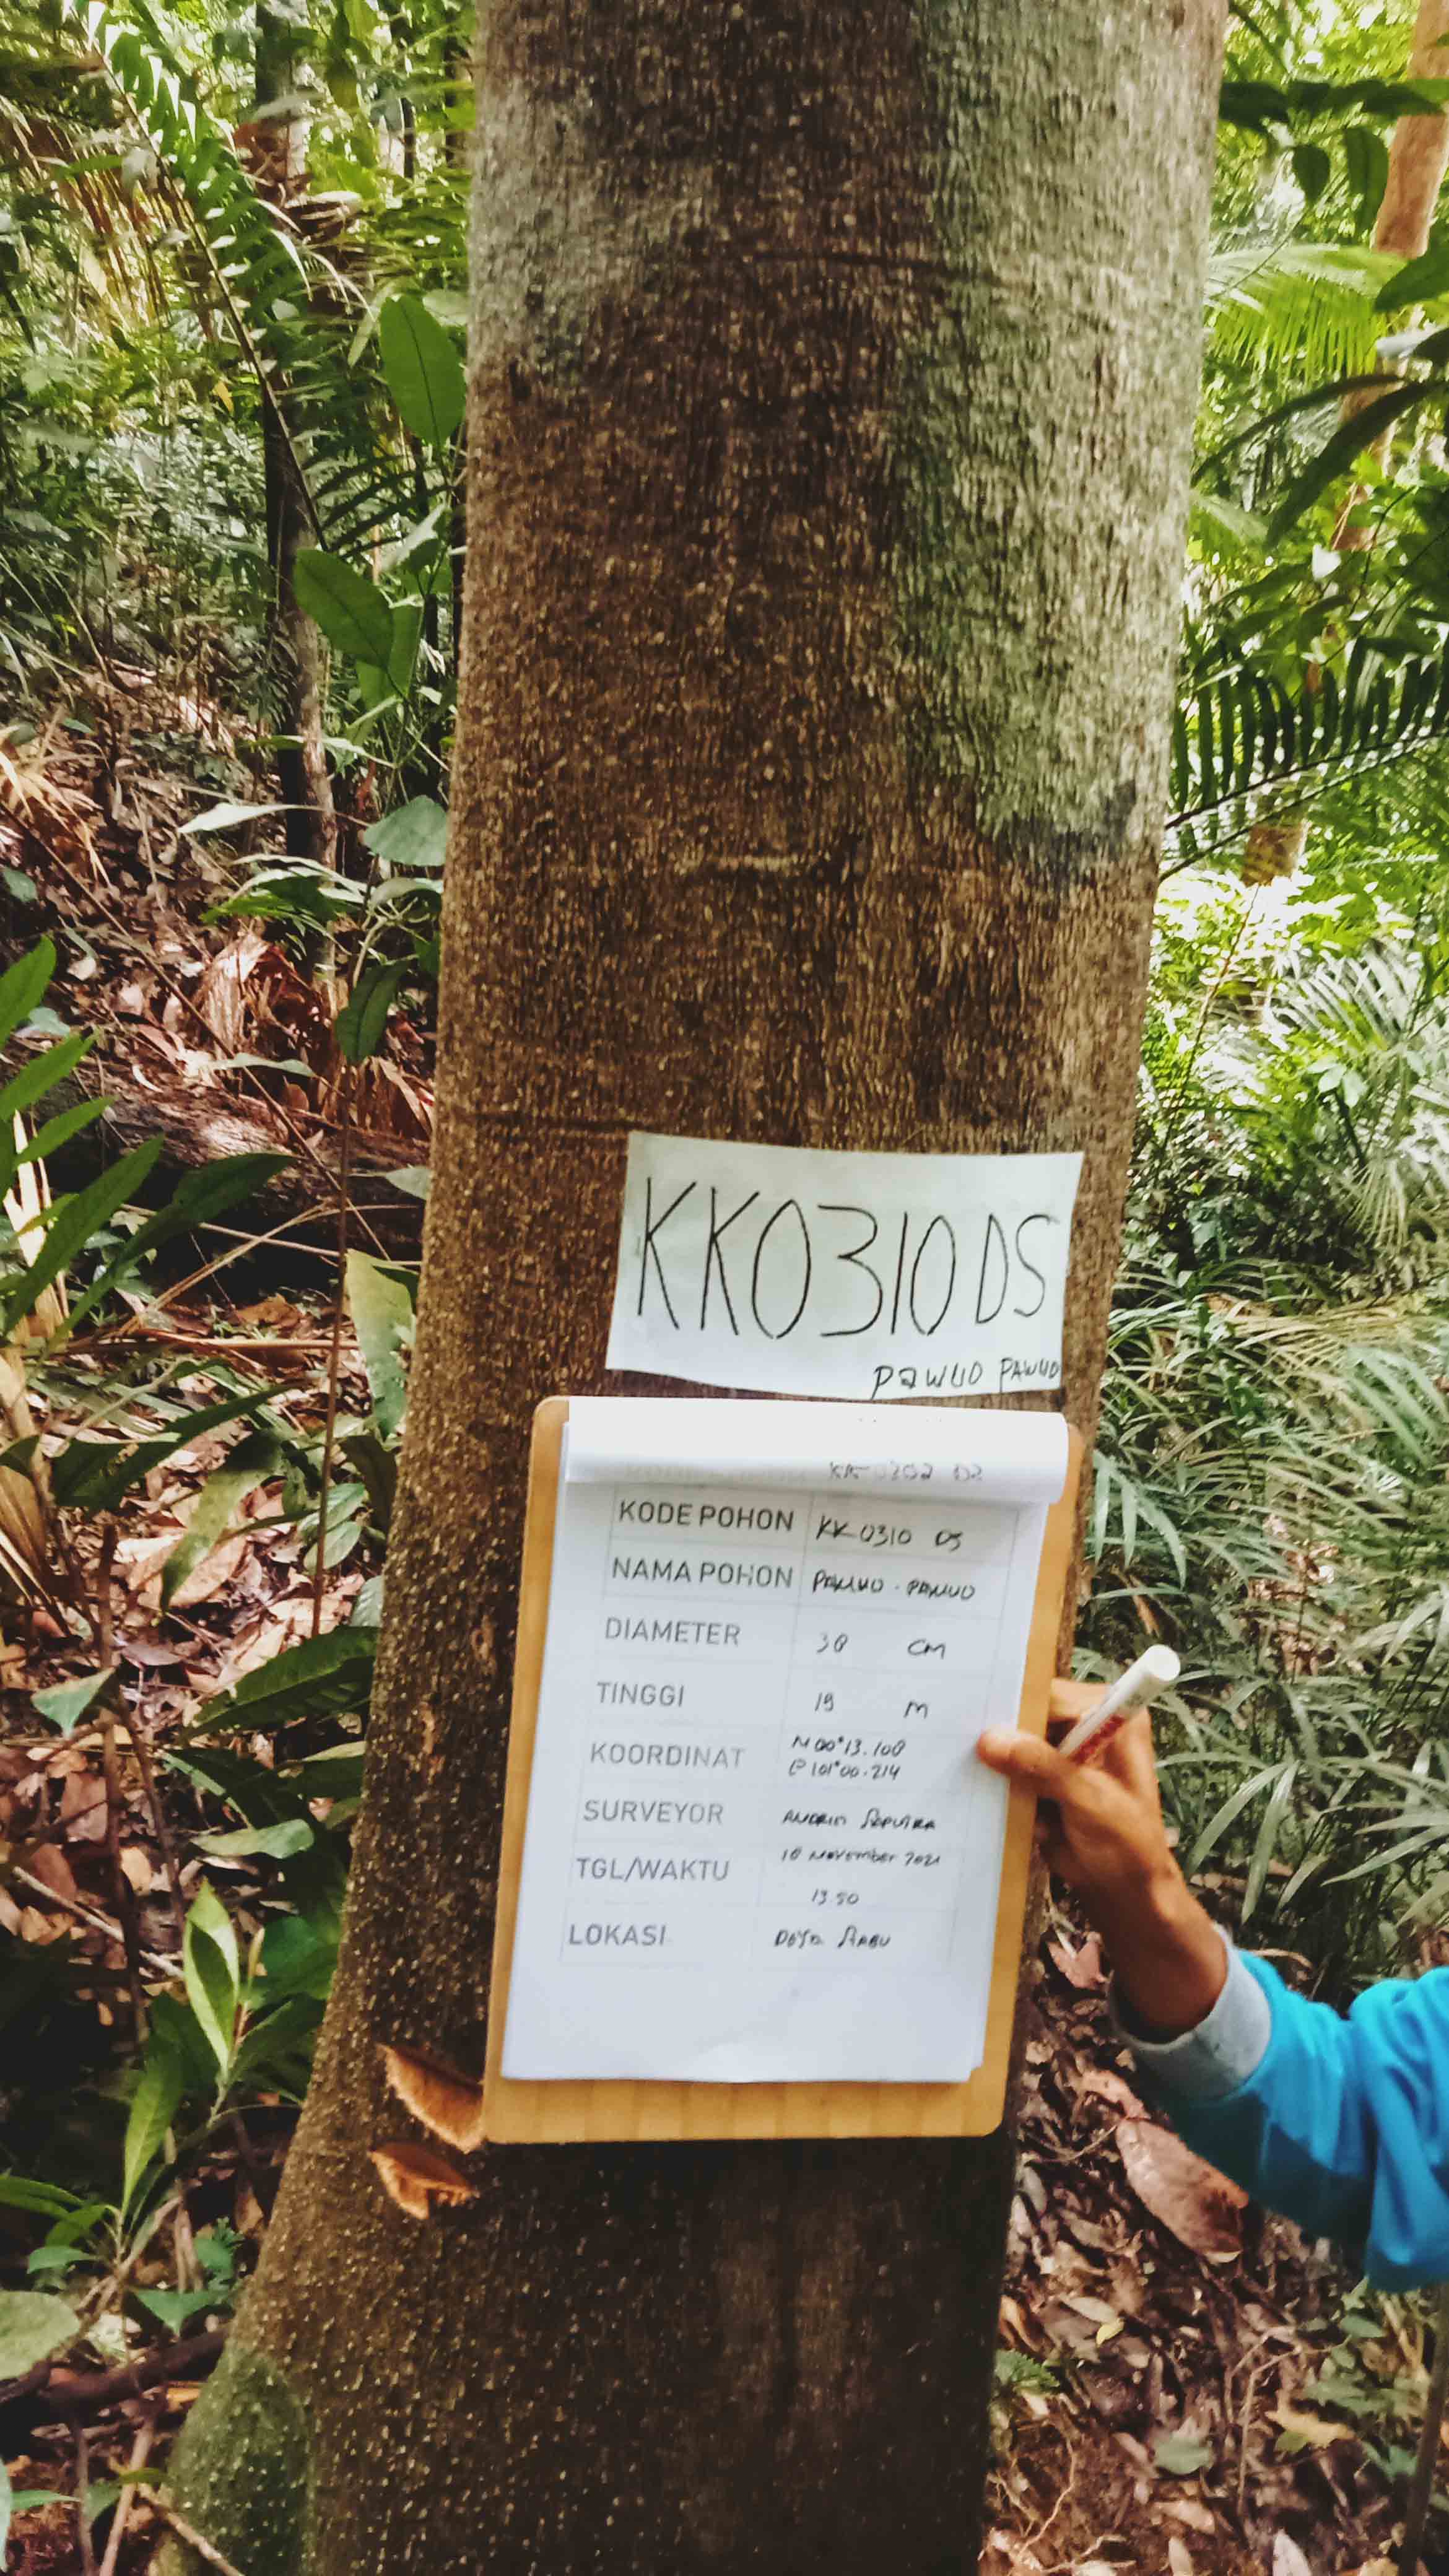 KK0310 DS
PAWUO PAWUO
KK 0302 D2
KODE POHON KK 0310 DS
NAMA POHON PAWUO - PAWUO
DIAMETER 38 CM
TINGGI 19 M
KOORDINAT N 00° 13.108
E 101° 00.214
SURVEYOR SAPUTRA
TGL/WAKTU 10 NOVEMBER 2021
13.50
LOKASI